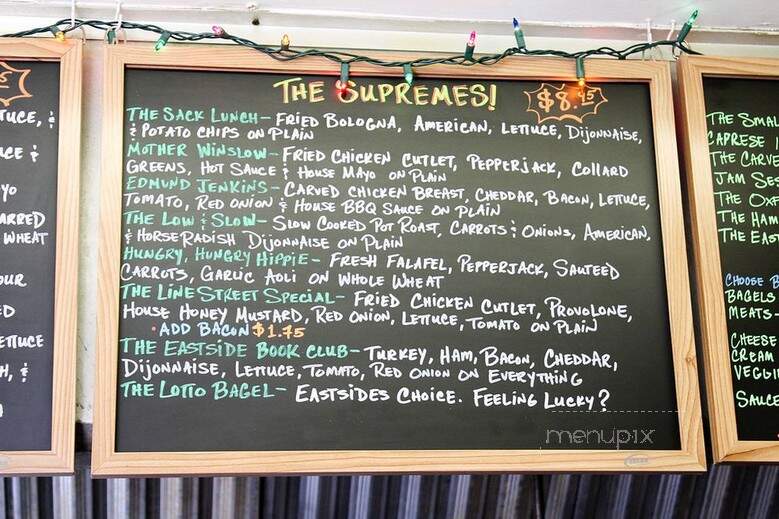 THE SUPREMES!
$8.45
THE SACK LUNCH- FRIED BOLOGNA, AMERICAN, LETTUCE, DIJONNAISE,
& POTATO CHIPS ON PLAIN
MOTHER WINSLOW- FRIED CHICKEN CUTLET, PEPPERJACK, COLLARD
GREENS, HOT SAUCE & HOUSE MAYO ON PLAIN
EDMUND JENKINS- CARVED CHICKEN BREAST, CHEDDAR, BACON, LETTUCE,
TOMATO, RED ONION & HOUSE BBQ SAUCE ON PLAIN
THE LOW & SLOW- SLOW COOKED POT ROAST, CARROTS & ONIONS, AMERICAN,
& HORSERADISH DIJONNAISE ON PLAIN
HUNGRY, HUNGRY HIPPIE- FRESH FALAFEL, PEPPERJACK, SAUTEED
CARROTS, GARLIC AOLI ON WHOLE WHEAT
THE LINE STREET SPECIAL- FRIED CHICKEN CUTLET, PROVOLONE,
HOUSE HONEY MUSTARD, RED ONION, LETTUCE, TOMATO ON PLAIN
• ADD BACON $1.75
THE EASTSIDE BOOK CLUB- TURKEY, HAM, BACON, CHEDDAR,
DIJONNAISE, LETTUCE, TOMATO, RED ONION ON EVERYTHING
THE LOTTO BAGEL- EASTSIDES CHOICE. FEELING LUCKY?
menupix
THE SMAL
CAPRESE
THE CARVE
JAM SES
THE OXF
THE HAM
THE EAST
CHOOSE B
BAGELS
MEATS-
CHEESE
CREAM
VEGGI
SAUCE
TUCE, &
YO
ARRED
WHEAT
OUR
ED
ETTUCE
H, &